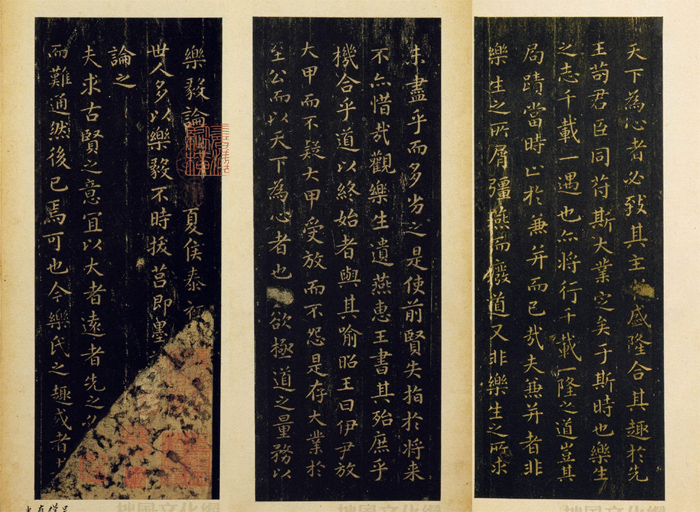 樂毅論 夏侯泰
世人多以樂毅不時拔莒即墨
論之
夫求古賢之意宜以大者遠者先之
而難通然後已焉可也今樂氏之趣或者
未盡乎而多劣之是使前賢失指於将来
不亦惜哉觀樂生遺燕惠王書其殆庶乎
機合乎道以終始者與其喻昭王曰伊尹放
大甲而不疑大甲受放而不怨是存大業於
至公而以天下為心者也 欲極道之量務以
天下為心者必致其主 盛隆合其趣於先
王苟君臣同苻斯大業定矣于斯時也樂生
之志千載一遇也亦将行千載一隆之道豈其
局蹟當時止於兼并而已哉夫兼并者非
樂生之所屑彊燕而廢道又非樂生之所求